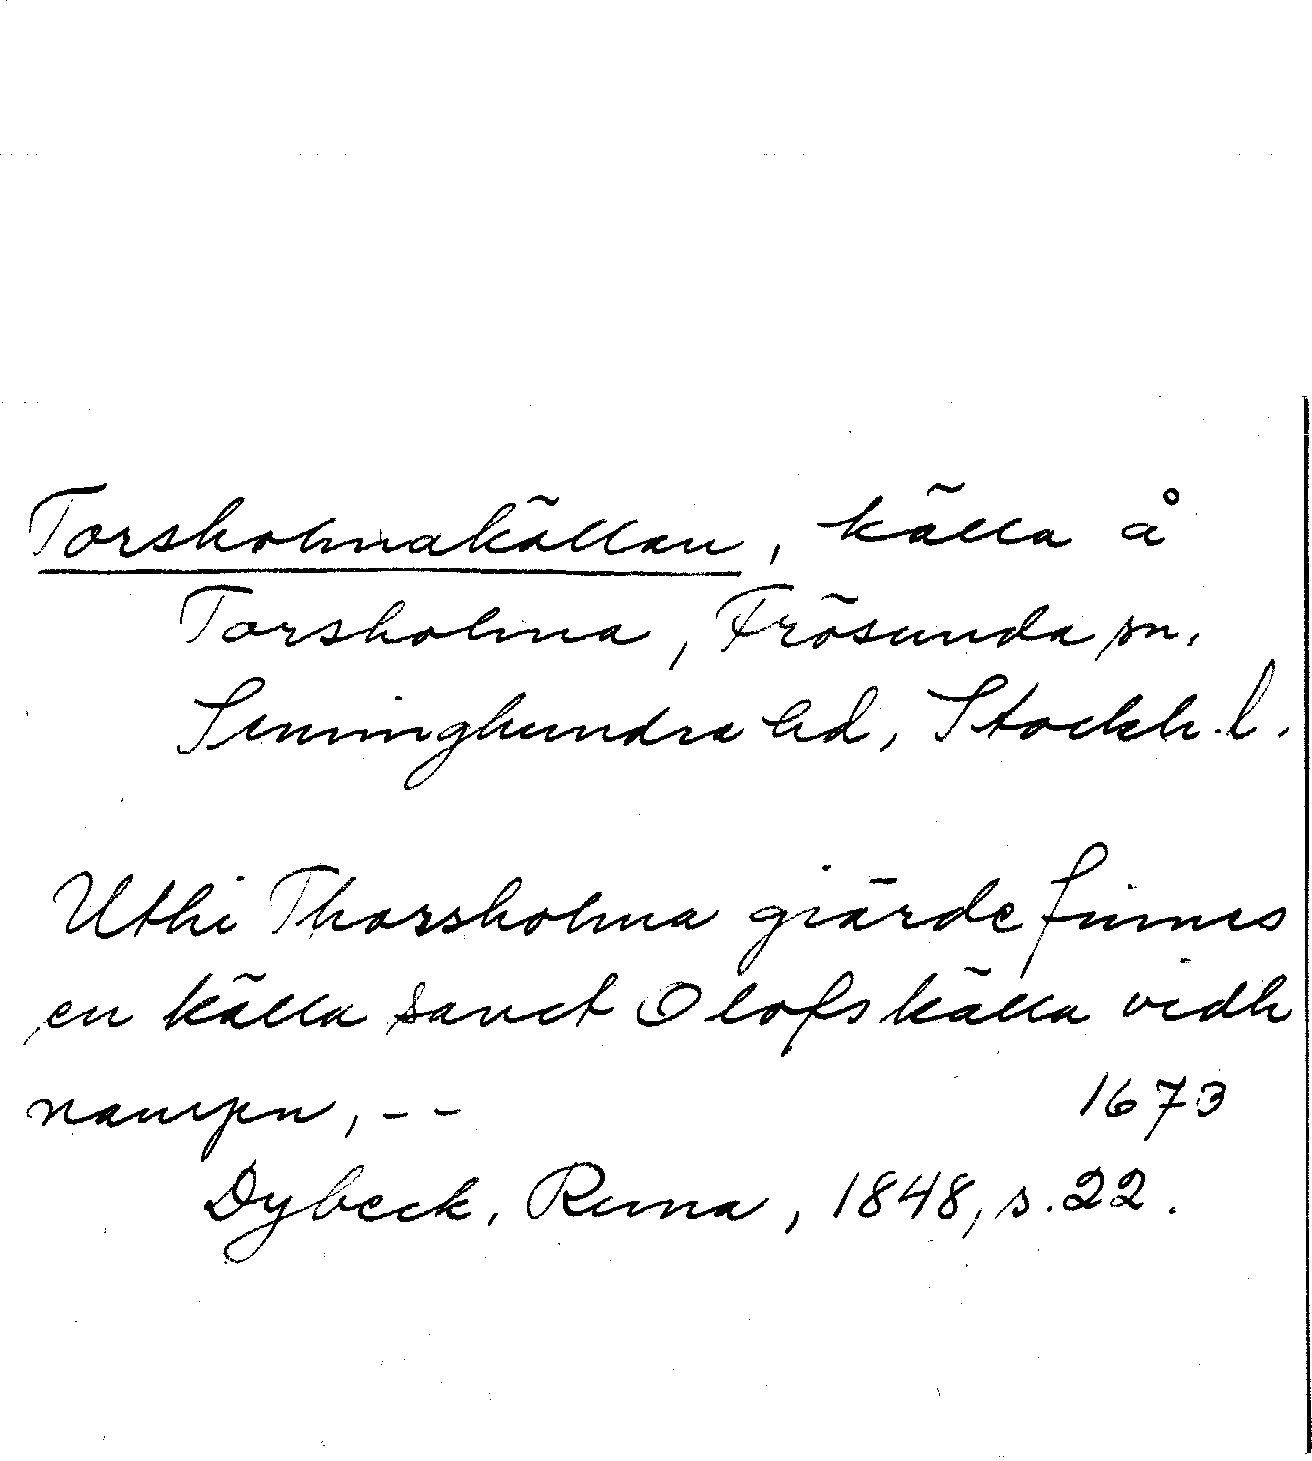 Torsholmakällan, källa å
Torsholma, Frösunda sn.
Seminghundra hd, Stockh. l.
Uthi Thorsholma giärde finnes
en källa sanct Olofs källa vidh
nampn, --
1673
Dybeck, Runa, 1848, s. 22.